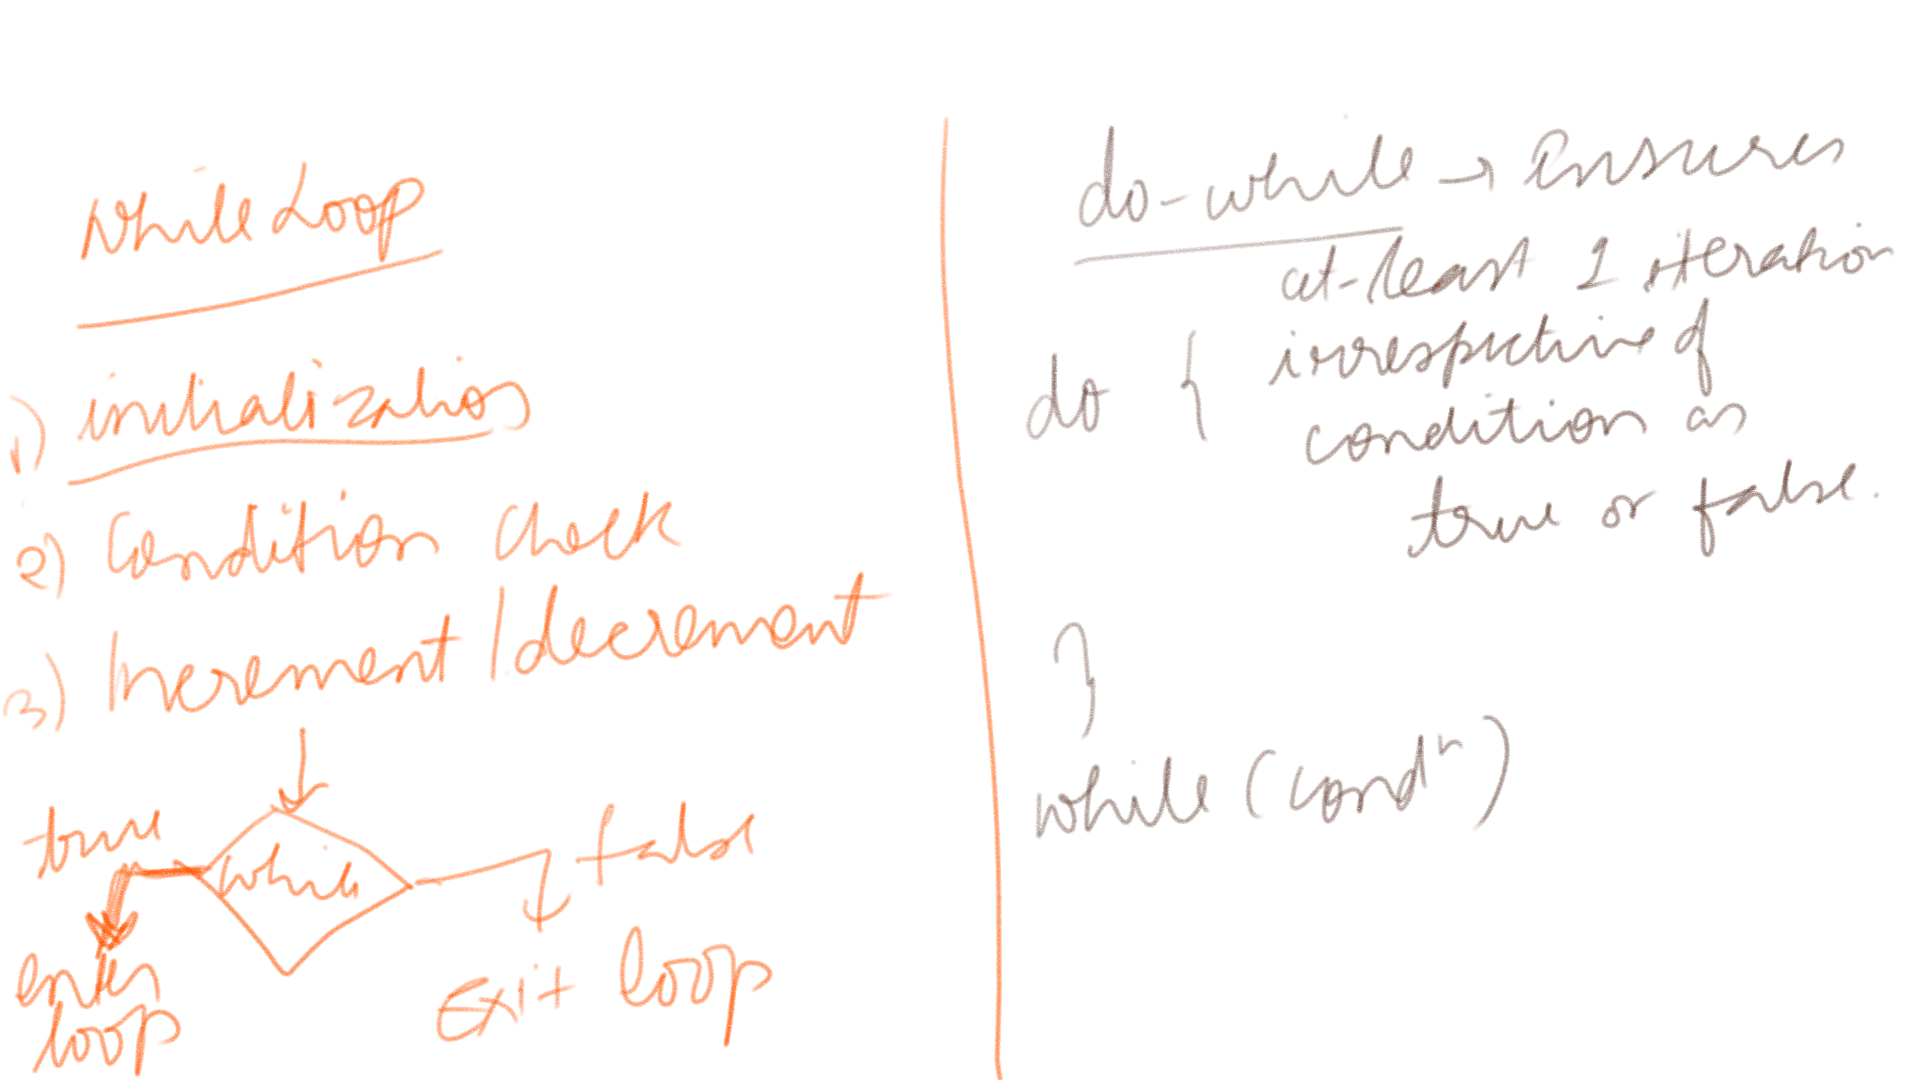 While Loop
1) initialization
2) Condition Check
3) Increment / decrement
true
while
false
enter
loop
Exit loop
do-while → Ensures
at-least 1 iteration
do { irrespective of
condition as
true or false.
}
while (condⁿ)